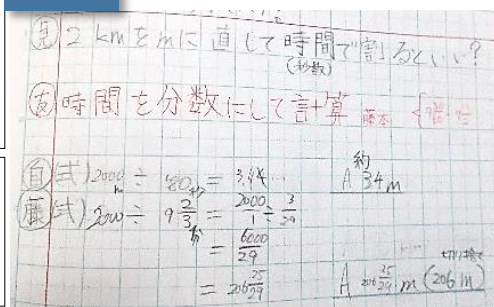 見 2 kmをmに直して時間で割るといい?
(秒数)
友 時間を分数にして計算 藤本
自 式) 2000m ÷ 580 = 3.44… A 約34m
藤 式) 2000 ÷ 9 2/3 = 2000/1 ÷ 3/29
= 6000/29
= 206 25/29 A 206 25/29 m (206m)
切り捨て